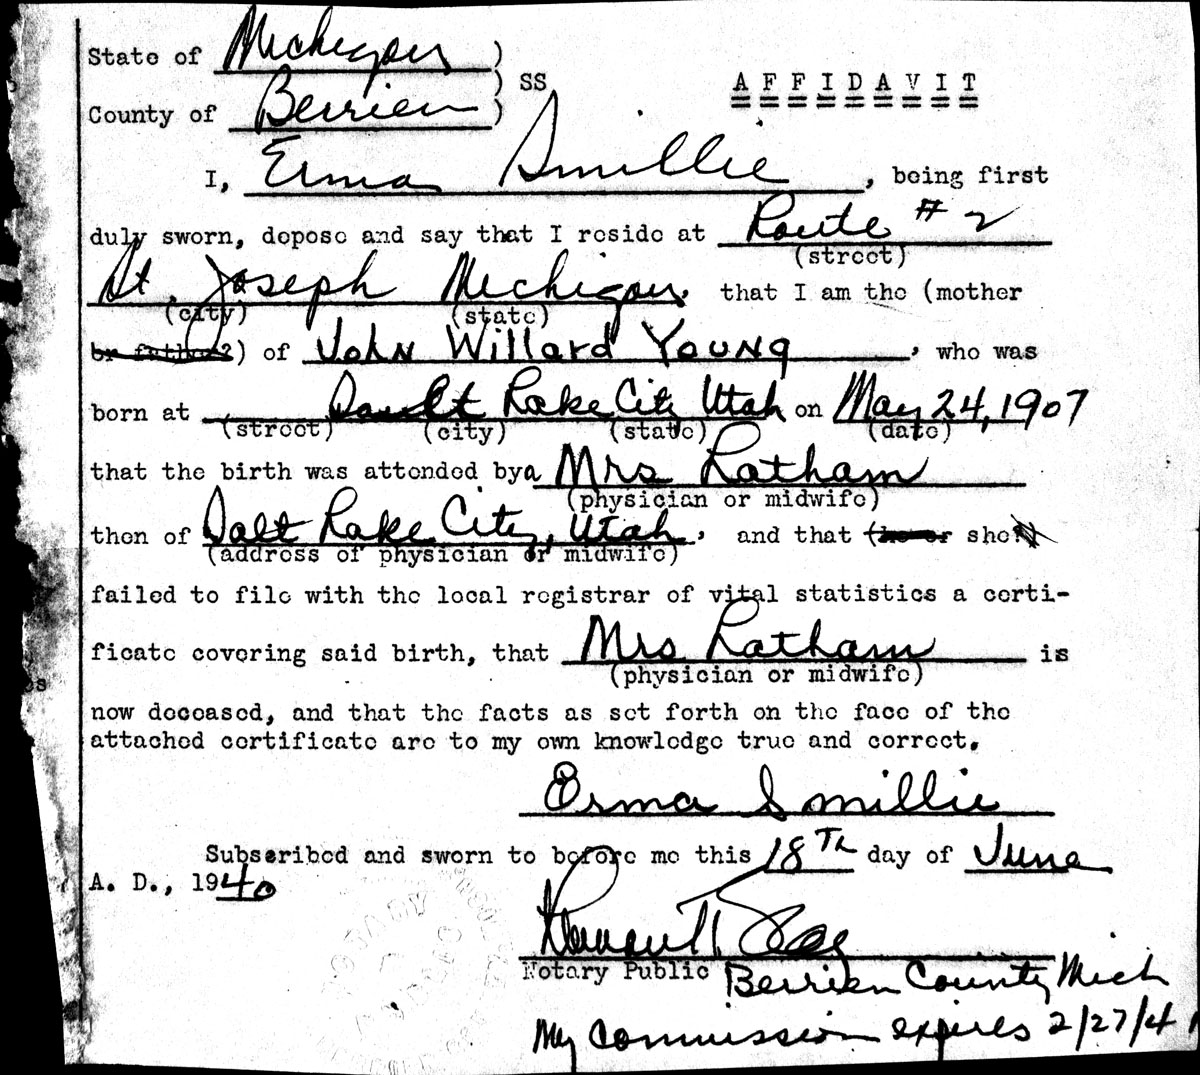 State of Michigan )
) SS AFFIDAVIT
County of Berrien )
I, Erma Smillie, being first
duly sworn, depose and say that I reside at Route # 2
(street)
St. Joseph Michigan, that I am the (mother
(city) (state)
or father) of John Willard Young, who was
born at Salt Lake City Utah on May 24, 1907
(street) (city) (state) (date)
that the birth was attended by a Mrs Latham
(physician or midwife)
then of Salt Lake City, Utah, and that (he or she)
(address of physician or midwife)
failed to file with the local registrar of vital statistics a certi-
ficate covering said birth, that Mrs Latham is
(physician or midwife)
now deceased, and that the facts as set forth on the face of the
attached certificate are to my own knowledge true and correct.
Erma Smillie
Subscribed and sworn to before me this 18Th day of June
A. D., 1940
Notary Public Berrien County Mich
My Commission expires 2/27/41